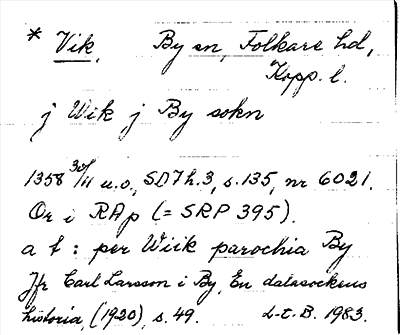 * Vik, By sn, Folkare hd,
Kopp. l.
j Wik j By sokn
1358 30/11 u.o., SD 7 h.3, s.135, nr 6021.
Or i RAp (= SRP 395).
a t : per Wiik parochia By
Jfr Carl Larsson i By, En dalasockens
historia, (1920), s. 49. L-E. B. 1983.